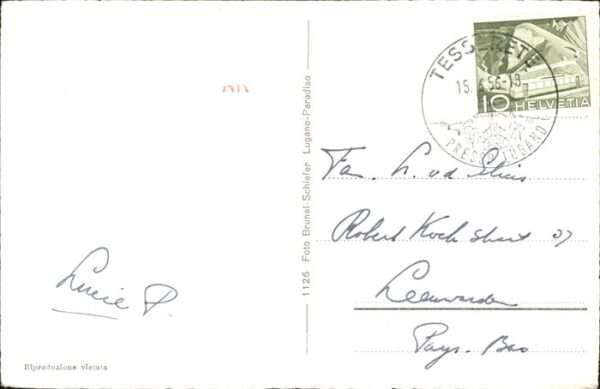 TESSERETE
15. 56-19
10 HELVETIA
PRESSO LUGANO
1125 Foto Brunel-Schiefer Lugano-Paradiso
Fam. L. v.d. Sluis
Robert Koch straat 27
Leeuwarden
Pays-Bas
Lucie P.
Riproduzione vietata